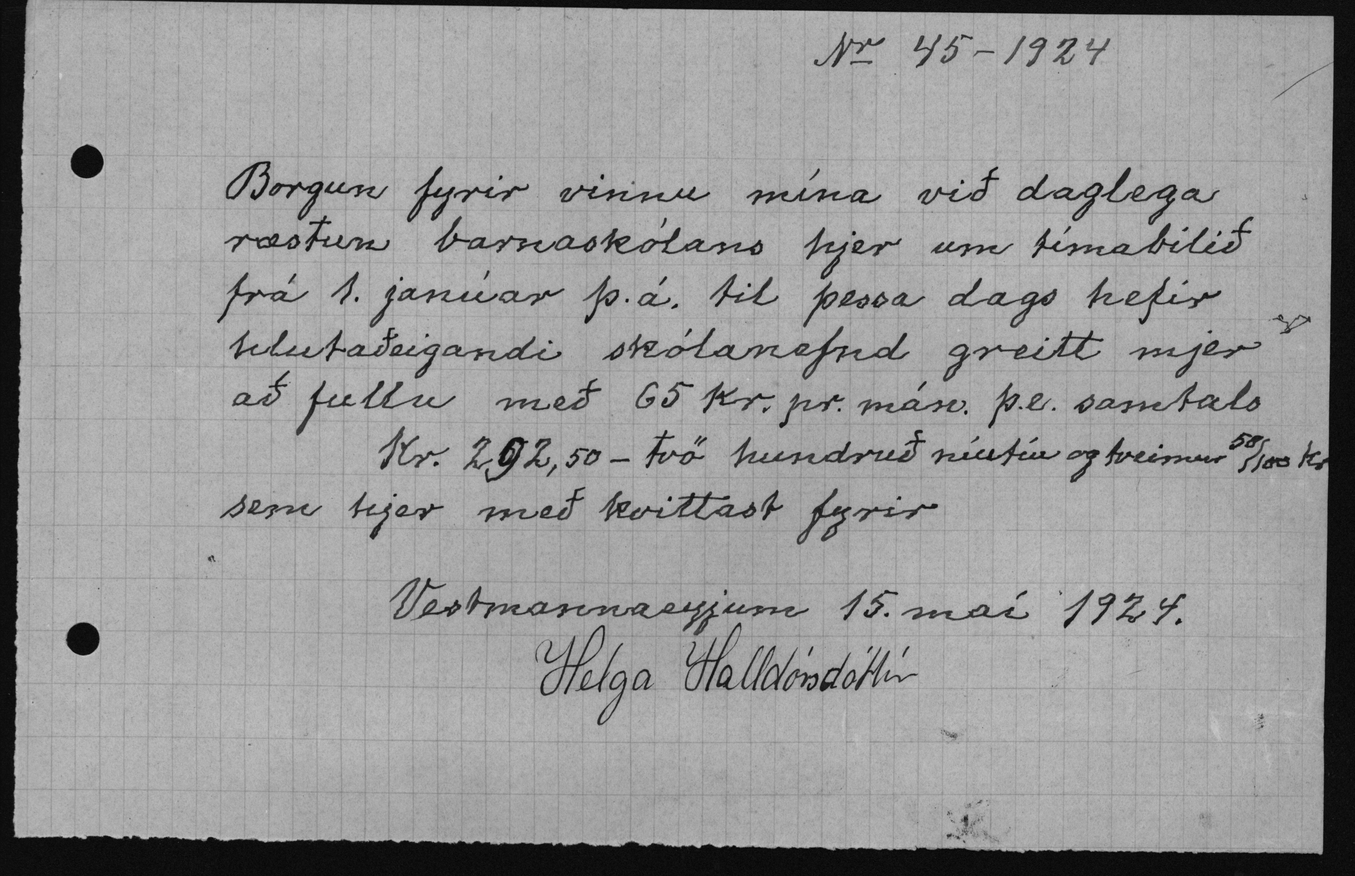 Nr 45-1924
Borgun fyrir vinnu mína við daglega
ræstun barnaskólans hjer um tímabilið
frá 1. janúar þ.á. til þessa dags hefir
hlutaðeigandi skólanefnd greitt mjer
að fullu með 65 Kr. pr. mán. þ.e. samtals
Kr. 292,50 - tvö hundruð níutíu og tveimur 50/100 Kr
sem hjer með kvittast fyrir
Vestmannaeyjum 15. maí 1924.
Helga Halldórsdóttir